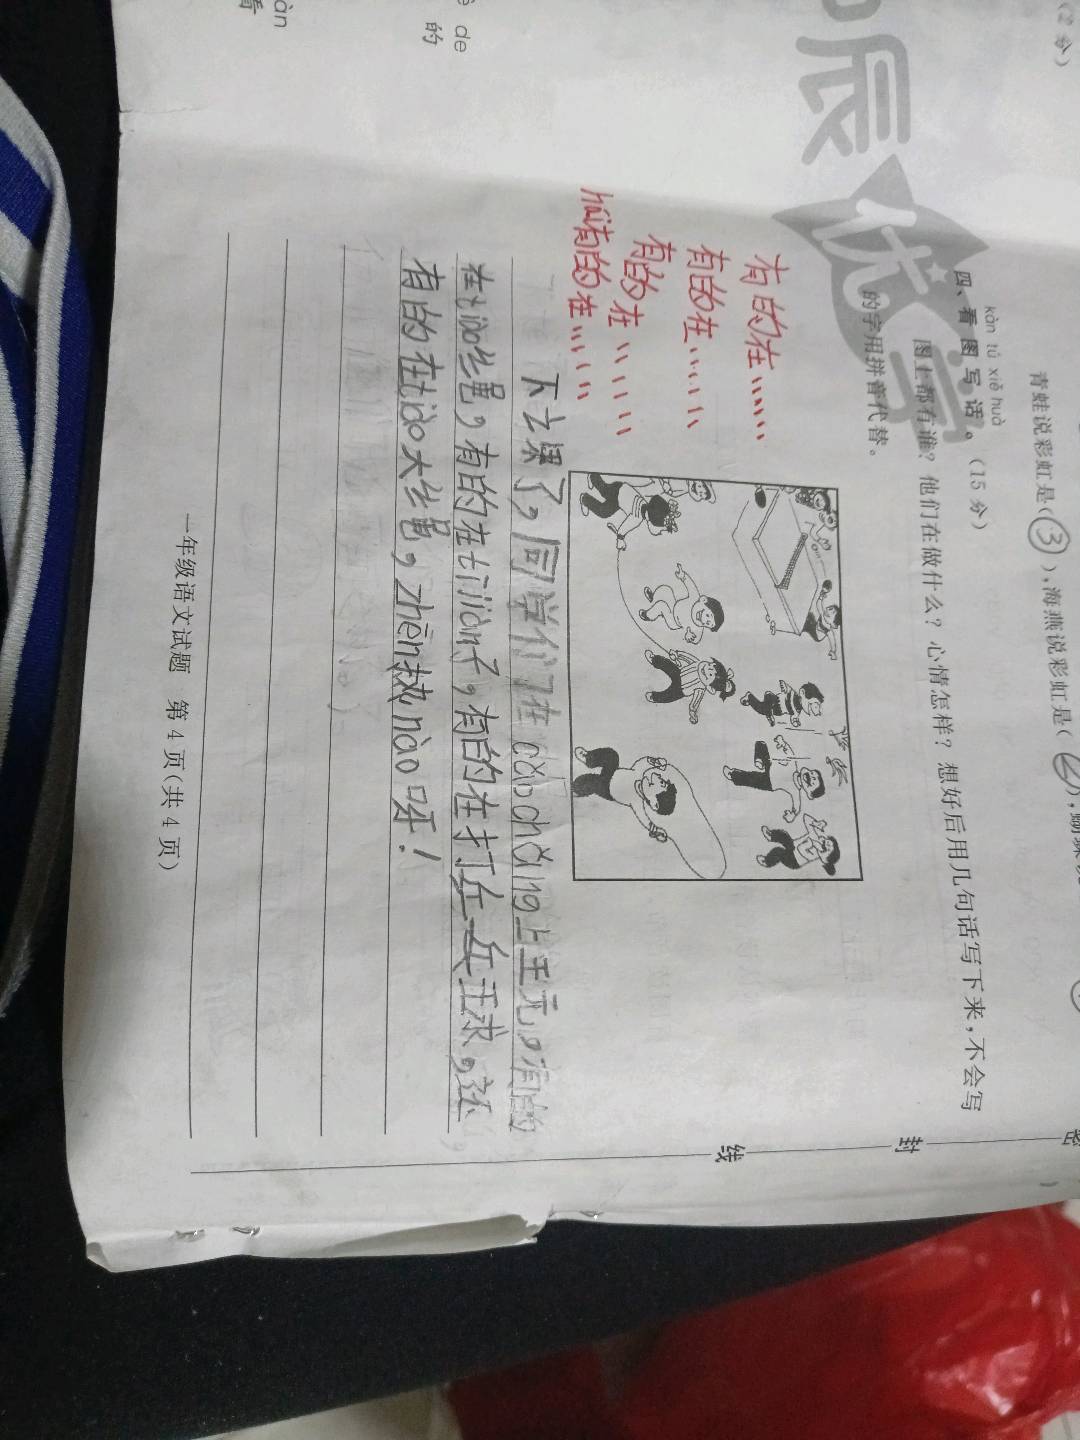 （2 分）
青蛙说彩虹是(③),海燕说彩虹是(②),
kàn tú xiě huà
四、看图写话。（15 分）
图上都有谁？他们在做什么？心情怎样？想好后用几句话写下来，不会写
的字用拼音代替。
辰优学
有的在……
有的在……
有的在……
hái有的在……
下课了，同学们在cāochǎng上玩，有的
在tiào绳，有的在tījiàn子，有的在打乒乓球，还
有的在tiào大绳，zhēn热nào呀！
一年级语文试题 第 4 页(共 4 页)
de
的
àn
密
封
线